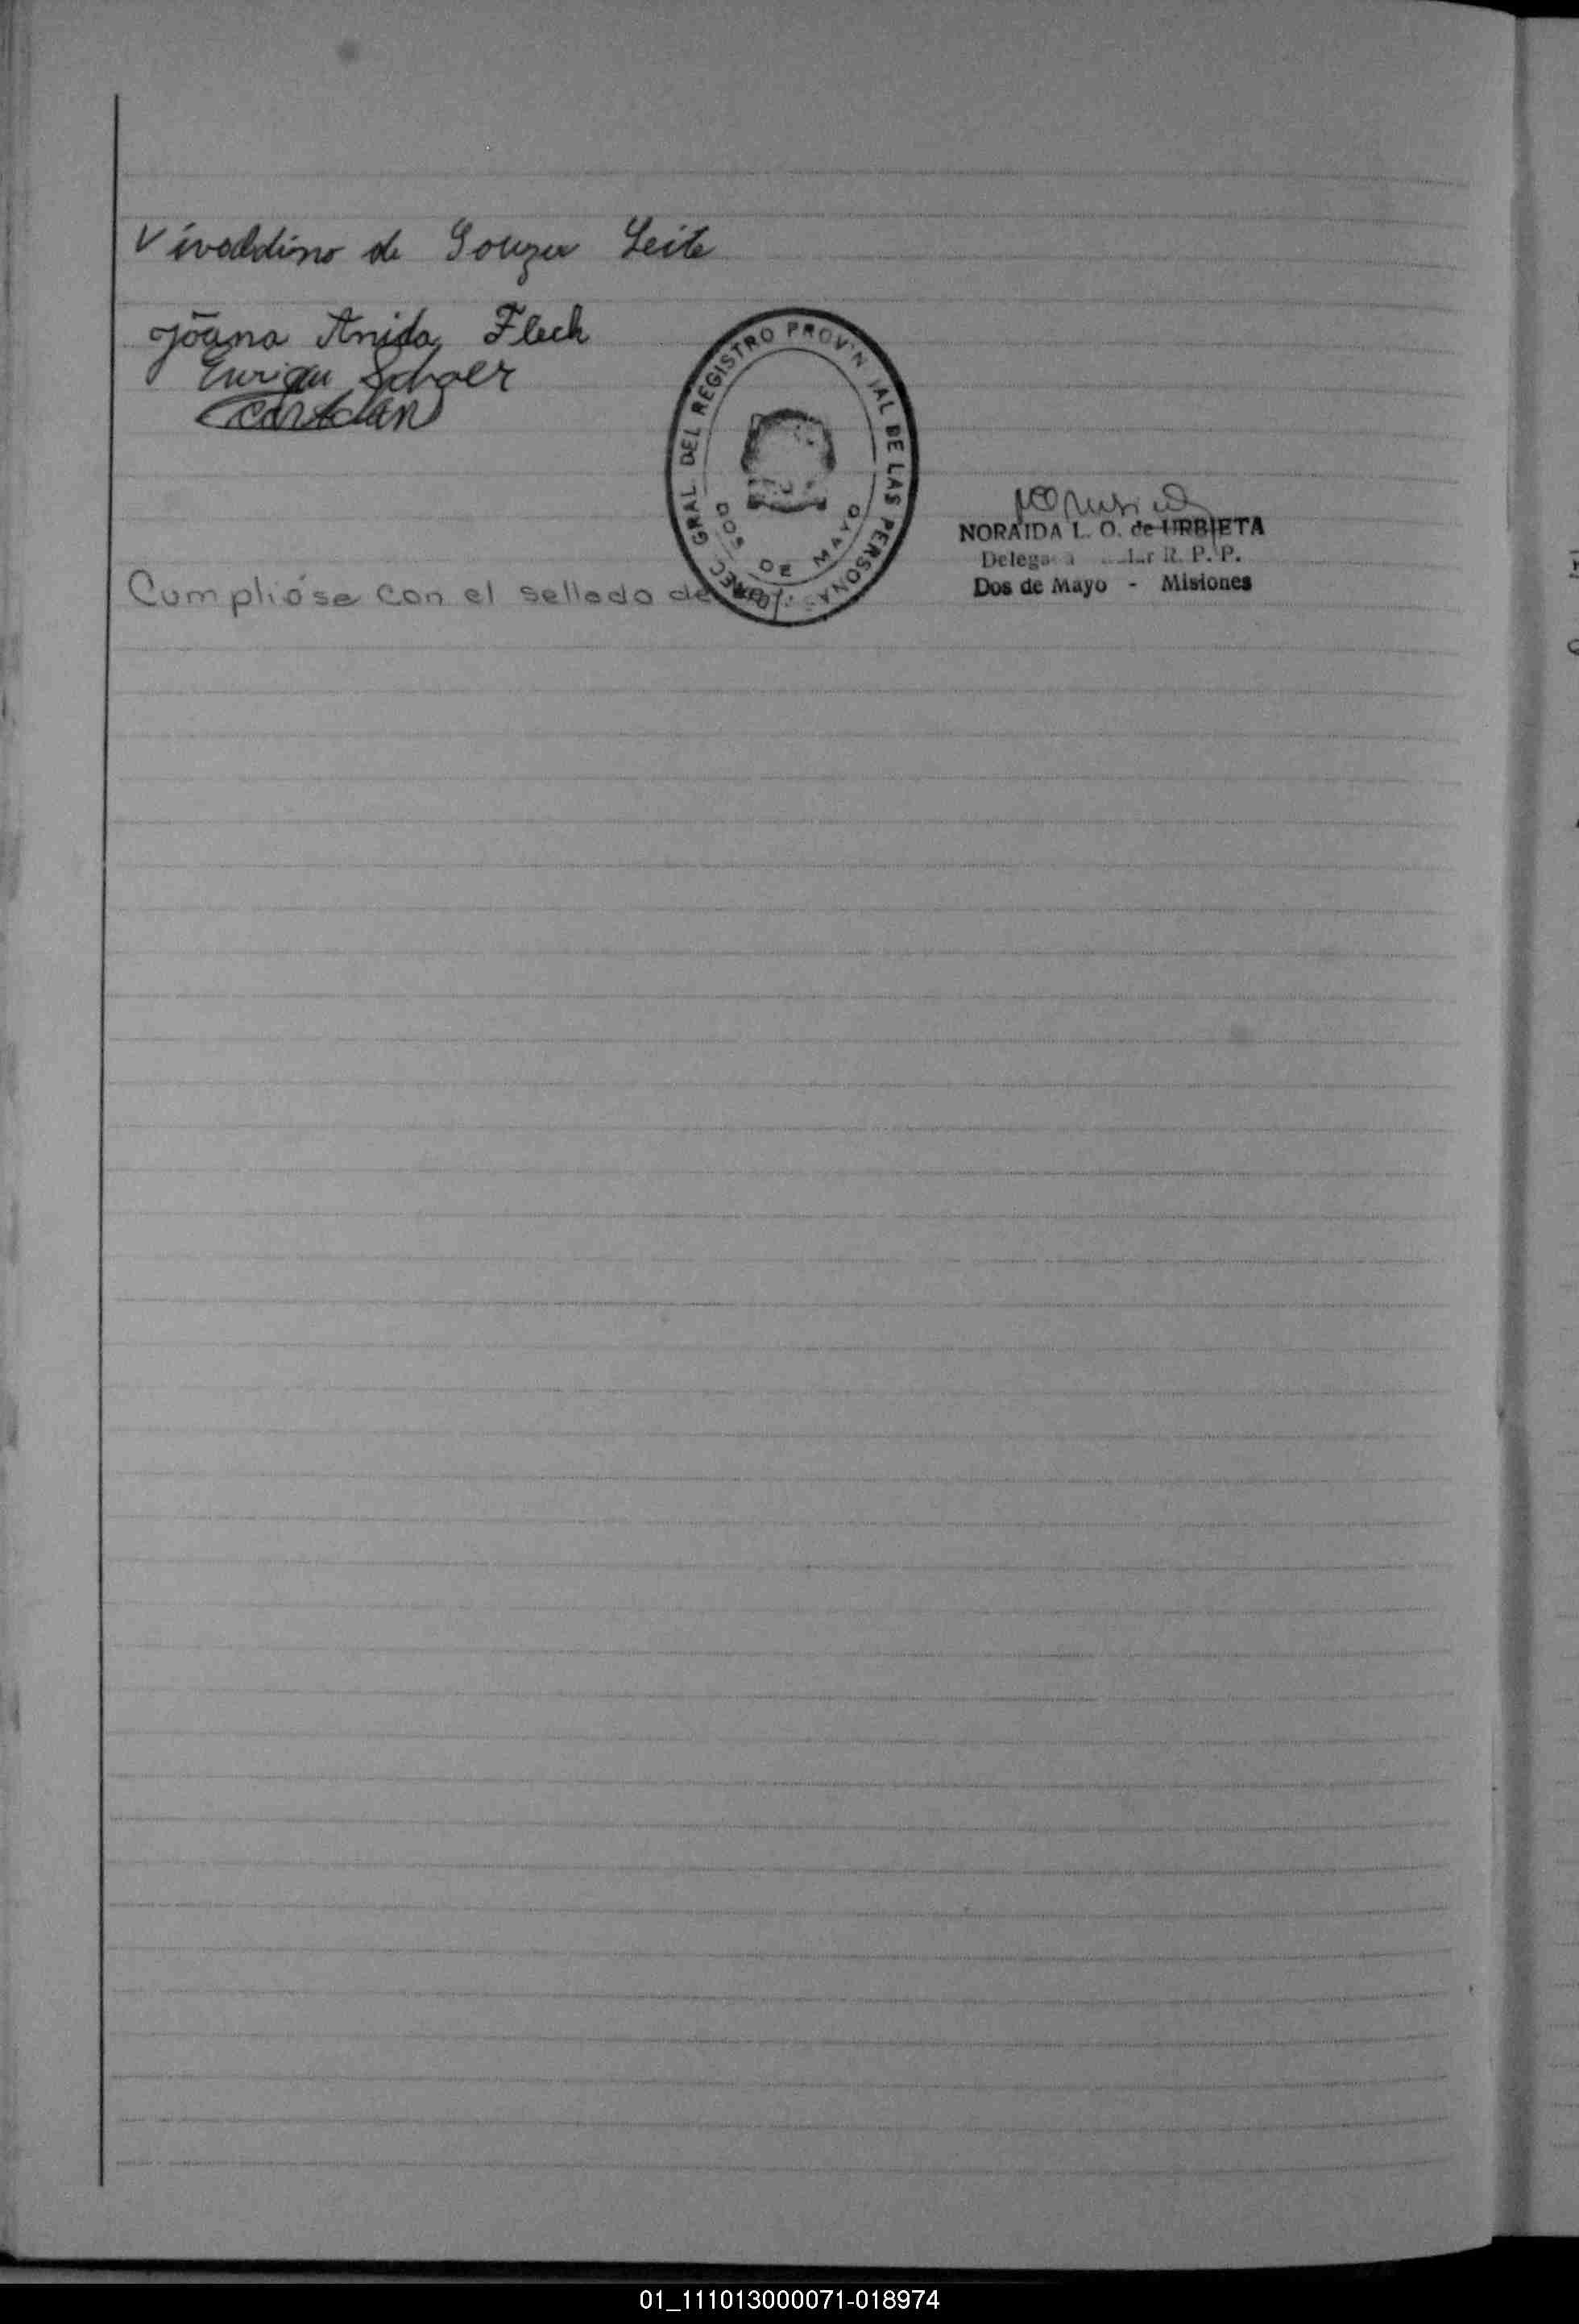 Vivaldino de Souza Leite
Joana Anida Fleck
Enrique Schaer
DIREC. GRAL. DEL REGISTRO PROVIN IAL DE LAS PERSONAS
DOS DE MAYO
NORAIDA L. O. de URBIETA
R. P. P.
Dos de Mayo - Misiones
Cumplióse con el sellado de
01_111013000071-018974